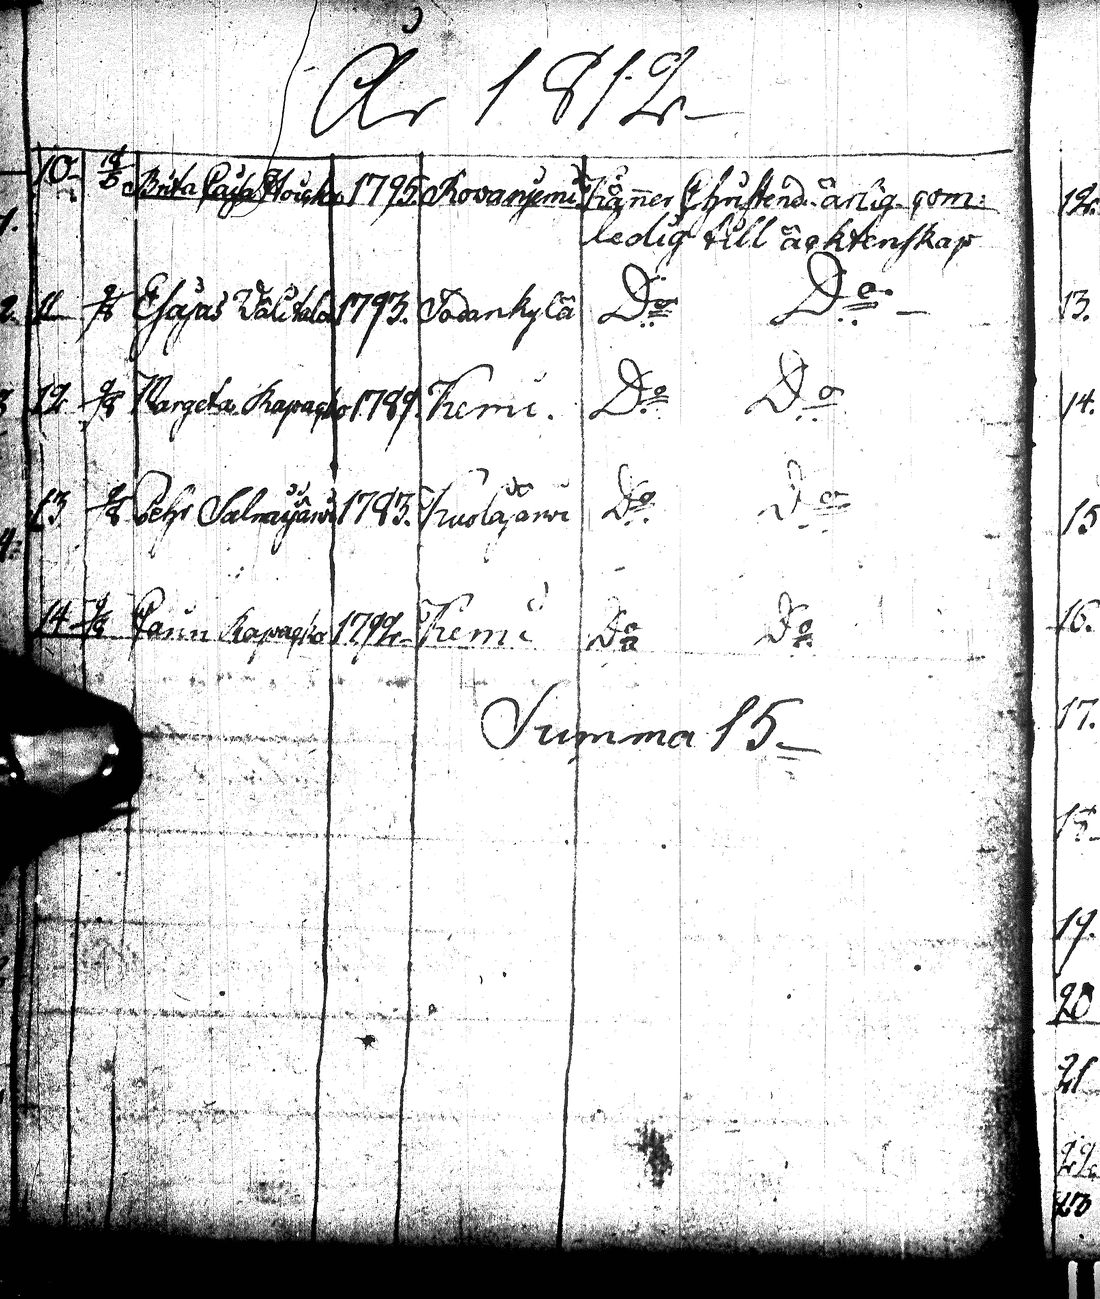 År 1812
10. Brita Caisa 1795. Rovanjemi Käner Christend. ärlig. com:
ledig till äcktenskap
11 Esajas Välitalo 1793. Sodankylä Do Do
12 Margeta Kapagko 1789. Kemi. Do Do
13 Pehr Salmijärvi 1783. Kuolajärvi Do Do
14 Kapagko 1792. Kemi Do Do
Summa 15
12.
13.
14.
15
16.
17.
19.
20
21
22.
23